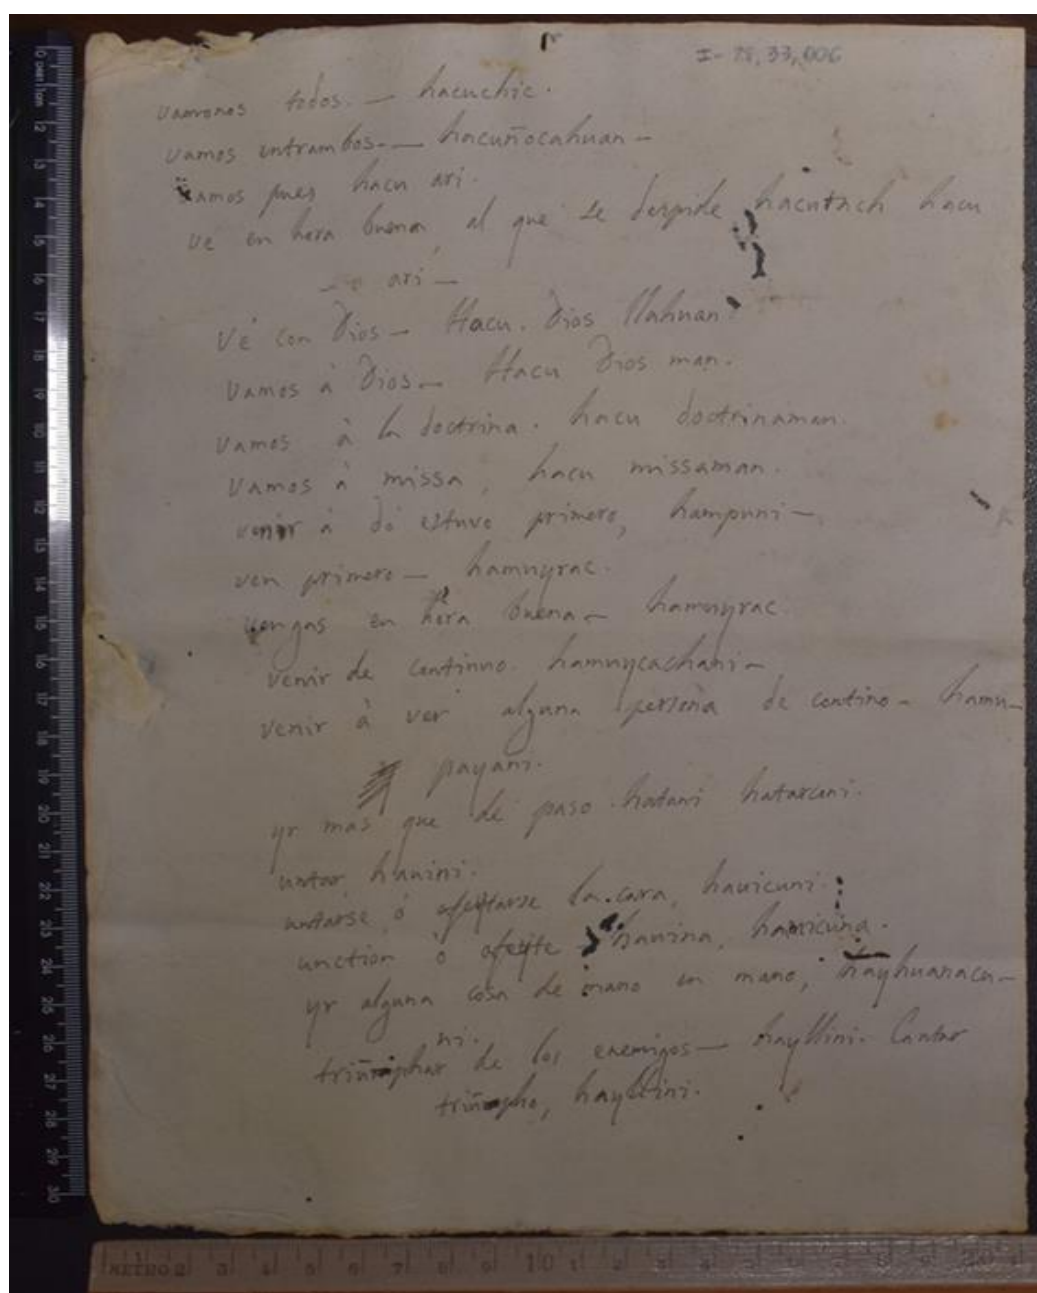 I-28,33,006
vamonos todos. — hacuchic.
vamos entrambos — hacuñocahuan —
vamos pues hacu ari.
ve en hora buena, al que se despide hacutach hacu
ari —
Vé con Dios — Hacu. Dios llahuan
Vamos à Dios — Hacu Dios man.
Vamos à la doctrina. hacu doctrinaman.
Vamos à missa, hacu missaman.
venir à dó estuvo primero, hampuni —
ven primero — hamuyrac.
vengas en hora buena — hamuyrac
venir de continuo. hamuycachani —
venir à ver alguna persona de contino — hamu-
payani.
yr mas que de paso hatani hatarcuni.
untar hauini.
untarse, ò afeytarse la cara, hauicuni.
unction ò afeyte hauina, hauicuna.
yr alguna cosa de mano en mano, hayhuanacu-
ni.
triumphar de los enemigos — hayllini. Cantar
triumpho, hayllini.